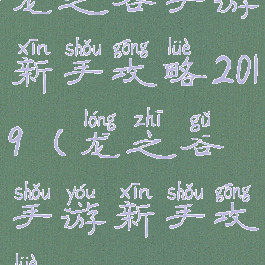 龙之谷手游
xīn shǒu gōng lüè
新手攻略201
lóng zhī gǔ
9（龙之谷
shǒu yóu xīn shǒu gōng
手游新手攻
lüè